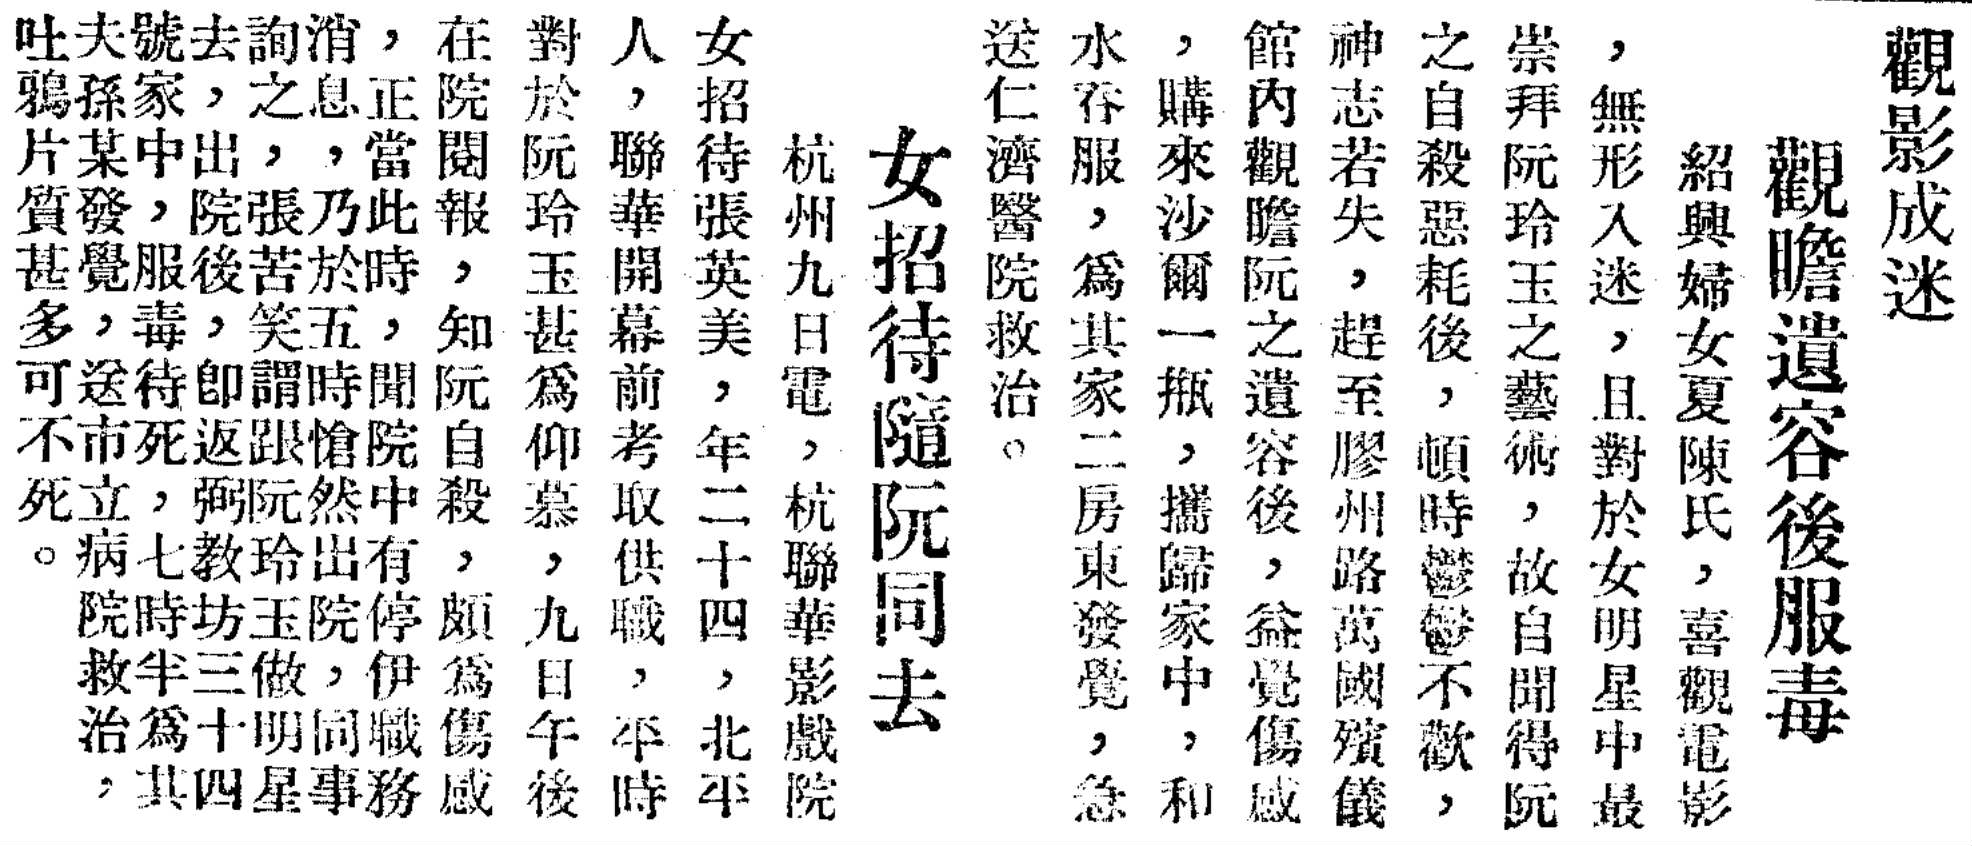 觀影成迷
觀瞻遺容後服毒
紹興婦女夏陳氏，喜觀電影
，無形入迷，且對於女明星中最
崇拜阮玲玉之藝術，故自聞得阮
之自殺惡耗後，頓時鬱鬱不歡，
神志若失，趕至膠州路萬國殯儀
館內觀瞻阮之遺容後，益覺傷感
，購來沙爾一瓶，攜歸家中，和
水吞服，爲其家二房東發覺，急
送仁濟醫院救治。
女招待隨阮同去
杭州九日電，杭聯華影戲院
女招待張英美，年二十四，北平
人，聯華開幕前考取供職，平時
對於阮玲玉甚爲仰慕，九日午後
在院閱報，知阮自殺，頗爲傷感
，正當此時，聞院中有停伊職務
消息，乃於五時愴然出院，同事
詢之，張苦笑謂跟阮玲玉做明星
去，出院後，卽返弼教坊三十四
號家中，服毒待死，七時半爲其
夫孫某發覺，送市立病院救治，
吐鴉片質甚多可不死。